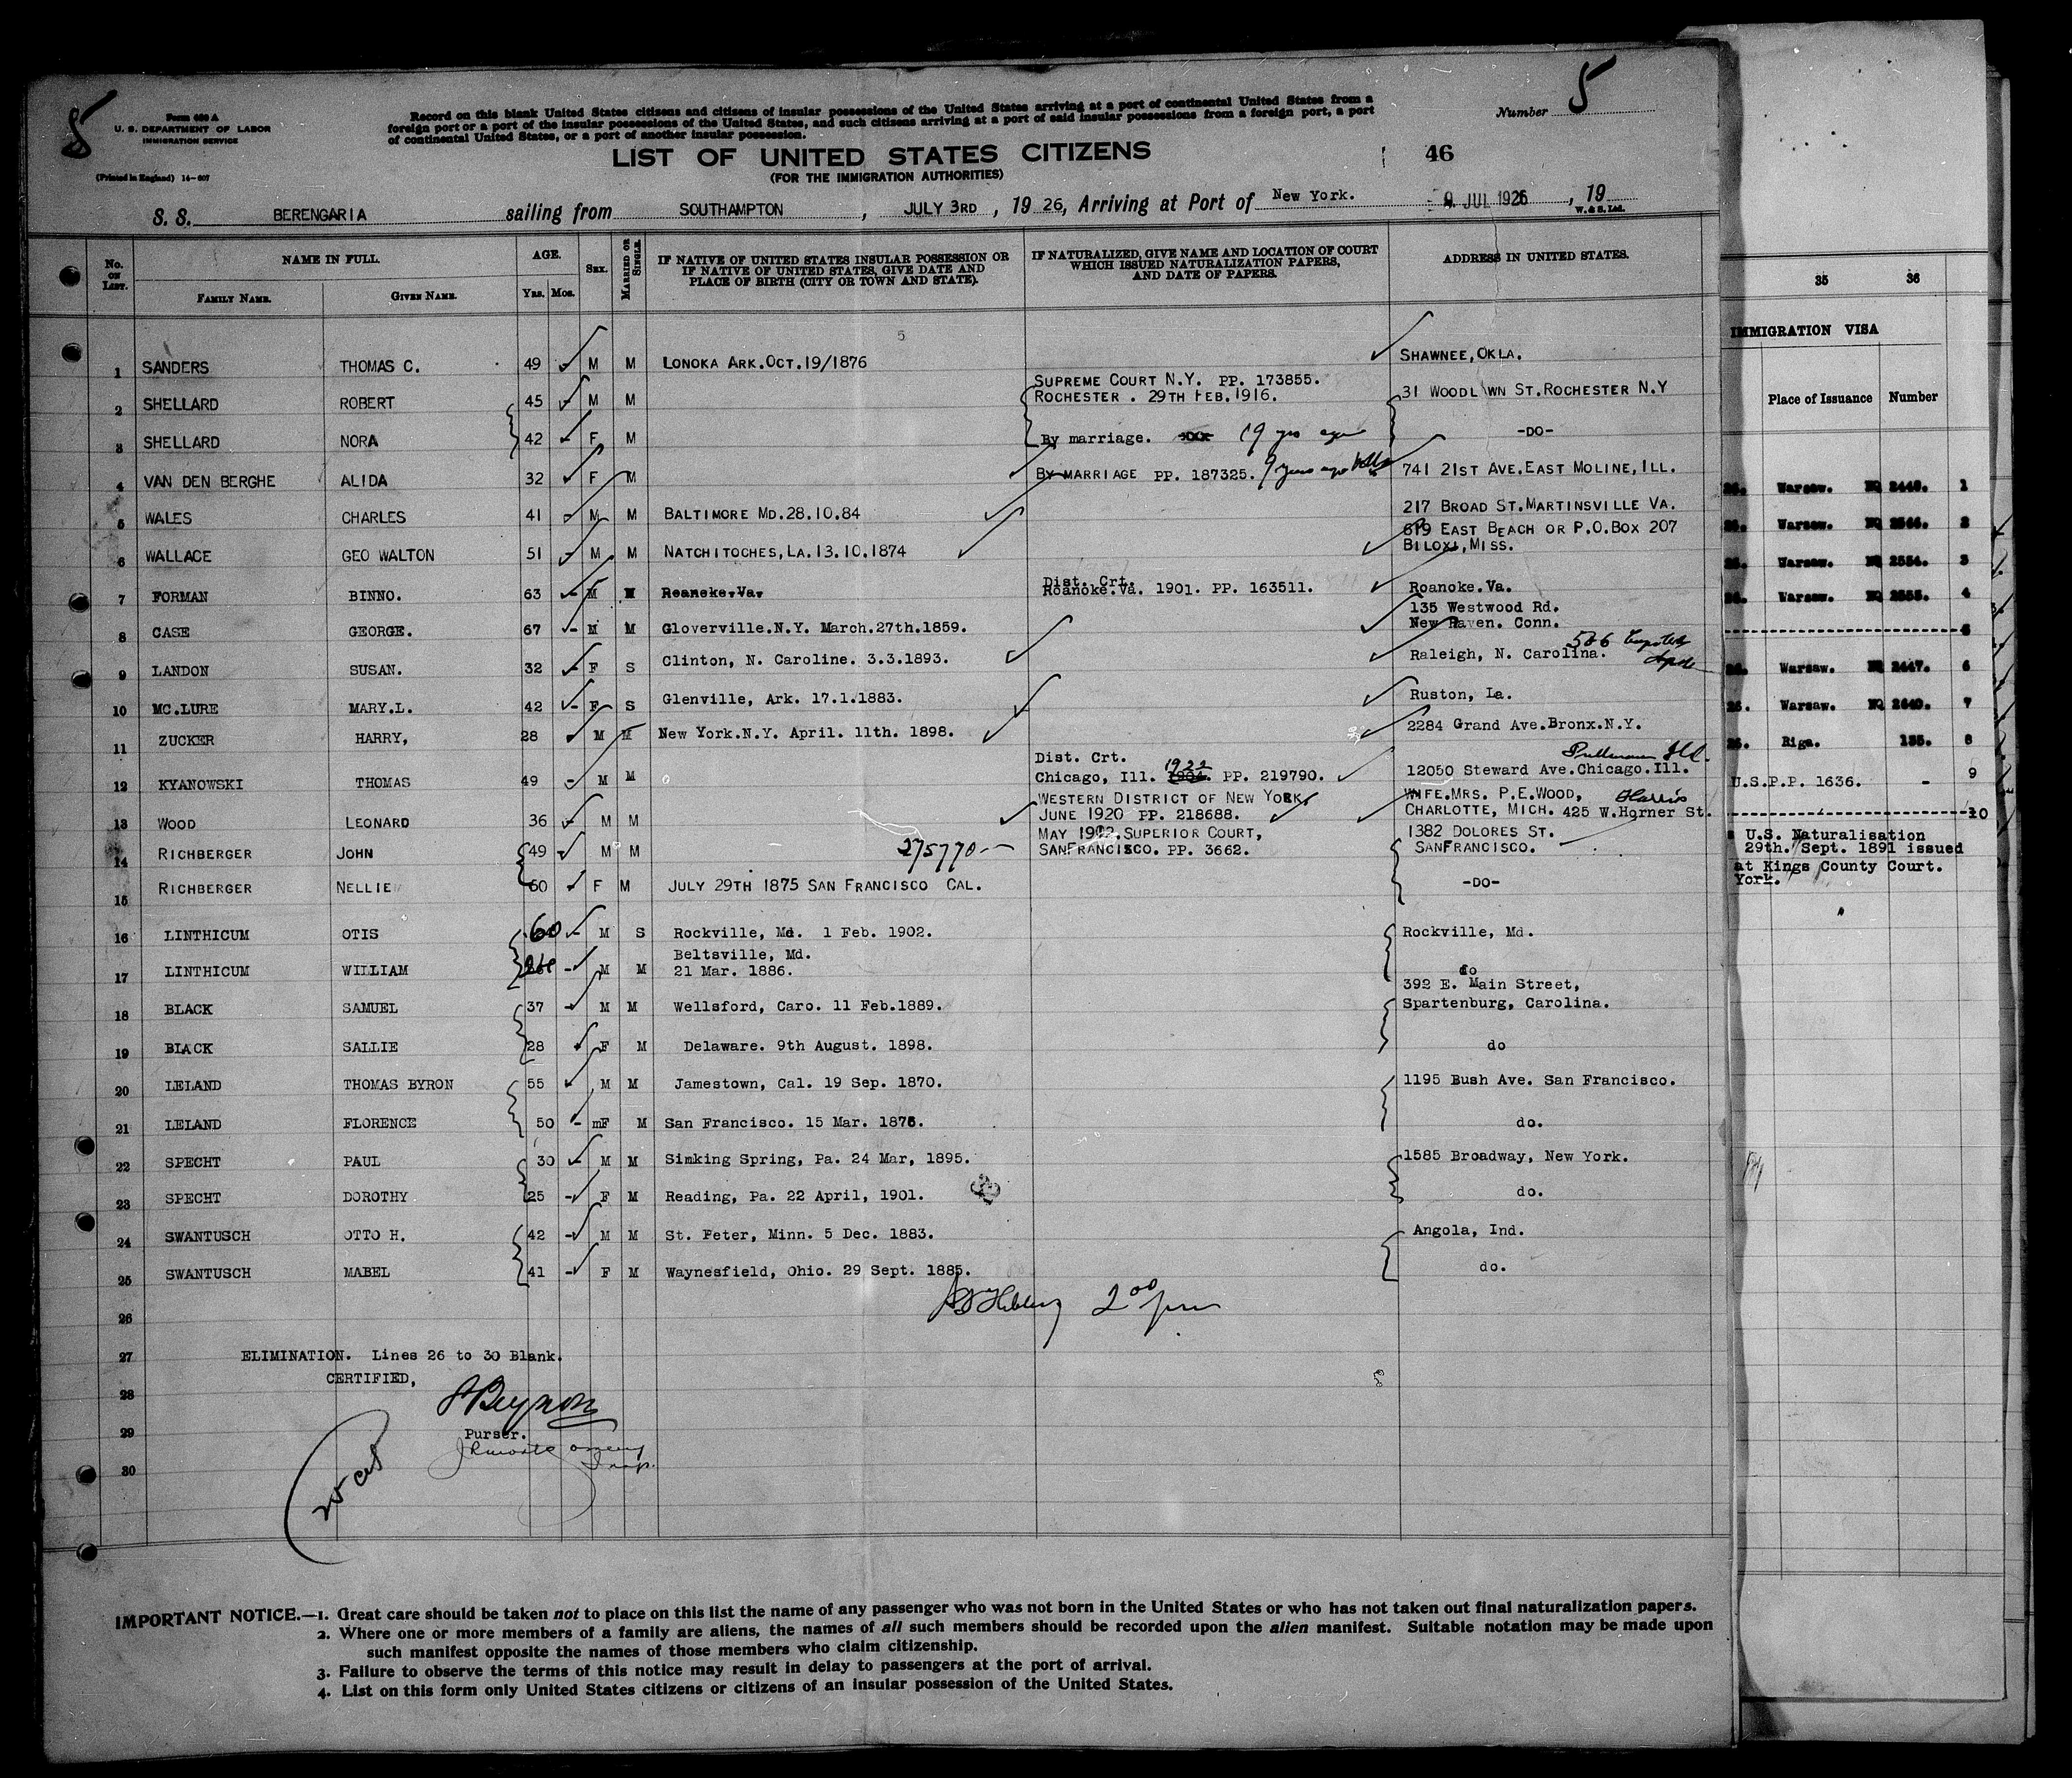 5
Form 630 A
U. S. DEPARTMENT OF LABOR
IMMIGRATION SERVICE
(Printed in England) 14-607
Record on this blank United States citizens and citizens of insular possessions of the United States arriving at a port of continental United States from a
foreign port or a port of the insular possessions of the United States, and such citizens arriving at a port of said insular possessions from a foreign port, a port
of continental United States, or a port of another insular possession.
Number 5
LIST OF UNITED STATES CITIZENS
46
(FOR THE IMMIGRATION AUTHORITIES)
S. S. BERENGARIA sailing from SOUTHAMPTON, JULY 3RD, 19 26, Arriving at Port of New York. 9 JUL 1926, 19
W. & S. Ltd.
No. ON LIST. NAME IN FULL. AGE. SEX. MARRIED OR SINGLE. IF NATIVE OF UNITED STATES INSULAR POSSESSION OR IF NATIVE OF UNITED STATES, GIVE DATE AND PLACE OF BIRTH (CITY OR TOWN AND STATE). IF NATURALIZED, GIVE NAME AND LOCATION OF COURT WHICH ISSUED NATURALIZATION PAPERS, AND DATE OF PAPERS. ADDRESS IN UNITED STATES.
FAMILY NAME. GIVEN NAME. YRS. MOS.
5
1 SANDERS THOMAS C. 49 M M LONOKA ARK.OCT.19/1876 SHAWNEE,OKLA.
SUPREME COURT N.Y. PP. 173855.
2 SHELLARD ROBERT 45 M M ROCHESTER . 29TH FEB.1916. 31 WOODL WN ST.ROCHESTER N.Y
3 SHELLARD NORA 42 F M By marriage. 19 yrs ago -DO-
4 VAN DEN BERGHE ALIDA 32 F M BY MARRIAGE PP. 187325. 9 years ago 741 21ST AVE.EAST MOLINE, ILL.
5 WALES CHARLES 41 M M BALTIMORE MD.28.10.84 217 BROAD ST.MARTINSVILLE VA.
619 EAST BEACH OR P.O.BOX 207
6 WALLACE GEO WALTON 51 M M NATCHITOCHES,LA.13.10.1874 BILOXI,MISS.
Dist. Crt.
7 FORMAN BINNO. 63 M M Roanoke.Va. Roanoke.Va. 1901. PP. 163511. Roanoke.Va.
135 Westwood Rd.
8 CASE GEORGE. 67 M M Gloverville.N.Y. March.27th.1859. New Haven. Conn.
586
9 LANDON SUSAN. 32 F S Clinton, N. Caroline. 3.3.1893. Raleigh, N. Carolina.
10 MC.LURE MARY.L. 42 F S Glenville, Ark. 17.1.1883. Ruston, La.
11 ZUCKER HARRY, 28 M M New York.N.Y. April. 11th. 1898. 2284 Grand Ave.Bronx.N.Y.
Dist. Crt. Pullman Ill.
1922
12 KYANOWSKI THOMAS 49 M M Chicago, Ill. 1904. PP. 219790. 12050 Steward Ave.Chicago.Ill.
WESTERN DISTRICT OF NEW YORK, WIFE.MRS. P.E.WOOD, Harris
13 WOOD LEONARD 36 M M JUNE 1920 PP. 218688. CHARLOTTE, MICH. 425 W.Horner St.
MAY 1902.SUPERIOR COURT, 1382 DOLORES ST.
14 RICHBERGER JOHN 49 M M 275770 SANFRANCISCO. PP. 3662. SANFRANCISCO.
15 RICHBERGER NELLIE 50 F M JULY 29TH 1875 SAN FRANCISCO CAL. -DO-
16 LINTHICUM OTIS 60 M S Rockville, Md. 1 Feb. 1902. Rockville, Md.
Beltsville, Md.
17 LINTHICUM WILLIAM 26 M M 21 Mar. 1886. do
392 E. Main Street,
18 BLACK SAMUEL 37 M M Wellsford, Caro. 11 Feb.1889. Spartenburg, Carolina.
19 BLACK SALLIE 28 F M Delaware. 9th August. 1898. do
20 LELAND THOMAS BYRON 55 M M Jamestown, Cal. 19 Sep. 1870. 1195 Bush Ave. San Francisco.
21 LELAND FLORENCE 50 mF M San Francisco. 15 Mar. 1876. do.
22 SPECHT PAUL 30 M M Simking Spring, Pa. 24 Mar, 1895. 1585 Broadway, New York.
23 SPECHT DOROTHY 25 F M Reading, Pa. 22 April, 1901. do.
24 SWANTUSCH OTTO H. 42 M M St. Peter, Minn. 5 Dec. 1883. Angola, Ind.
25 SWANTUSCH MABEL 41 F M Waynesfield, Ohio. 29 Sept. 1885. do.
2 00 pm
26
27 ELIMINATION. Lines 26 to 30 Blank.
CERTIFIED,
28
Beynon
29 Purser.
30
IMPORTANT NOTICE.—1. Great care should be taken not to place on this list the name of any passenger who was not born in the United States or who has not taken out final naturalization papers.
2. Where one or more members of a family are aliens, the names of all such members should be recorded upon the alien manifest. Suitable notation may be made upon
such manifest opposite the names of those members who claim citizenship.
3. Failure to observe the terms of this notice may result in delay to passengers at the port of arrival.
4. List on this form only United States citizens or citizens of an insular possession of the United States.
35 36
IMMIGRATION VISA
Place of Issuance Number
26. Warsaw. 2448. 1
26. Warsaw. 2546. 2
26. Warsaw. 2554. 3
26. Warsaw. 2555. 4
5
26. Warsaw. 2447. 6
26. Warsaw. 2640. 7
26. Riga. 135. 8
U.S.P.P. 1636. - 9
10
U.S. Naturalisation
29th. Sept. 1891 issued
at Kings County Court.
York.